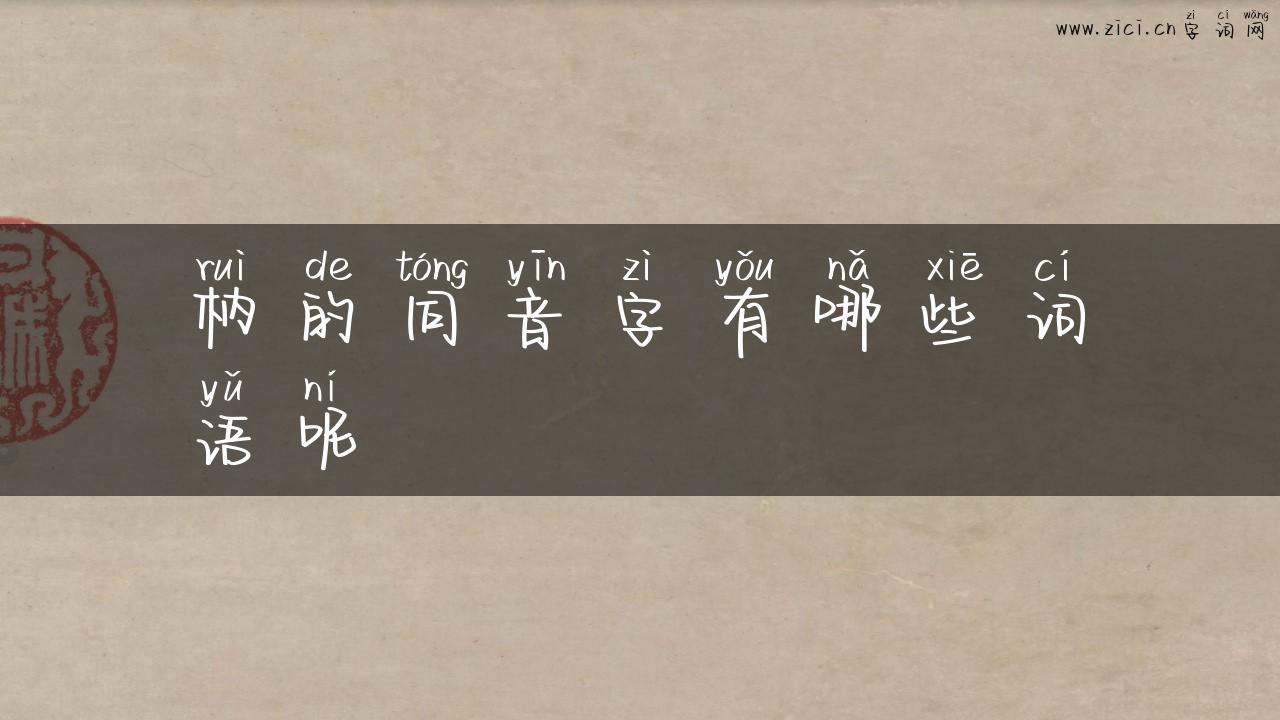 zì cí wǎng
www.zici.cn字词网
ruì de tóng yīn zì yǒu nǎ xiē cí
枘的同音字有哪些词
yǔ ní
语呢